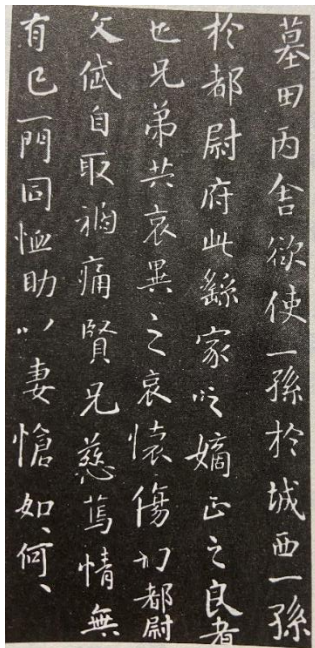 墓田丙舍欲使一孫於城西一孫
於都尉府此繇家之嫡正之良者
也兄弟共哀異之哀懷傷切都尉
文岱自取禍痛賢兄慈篤情無
有已一門同恤助以妻愴如、何、